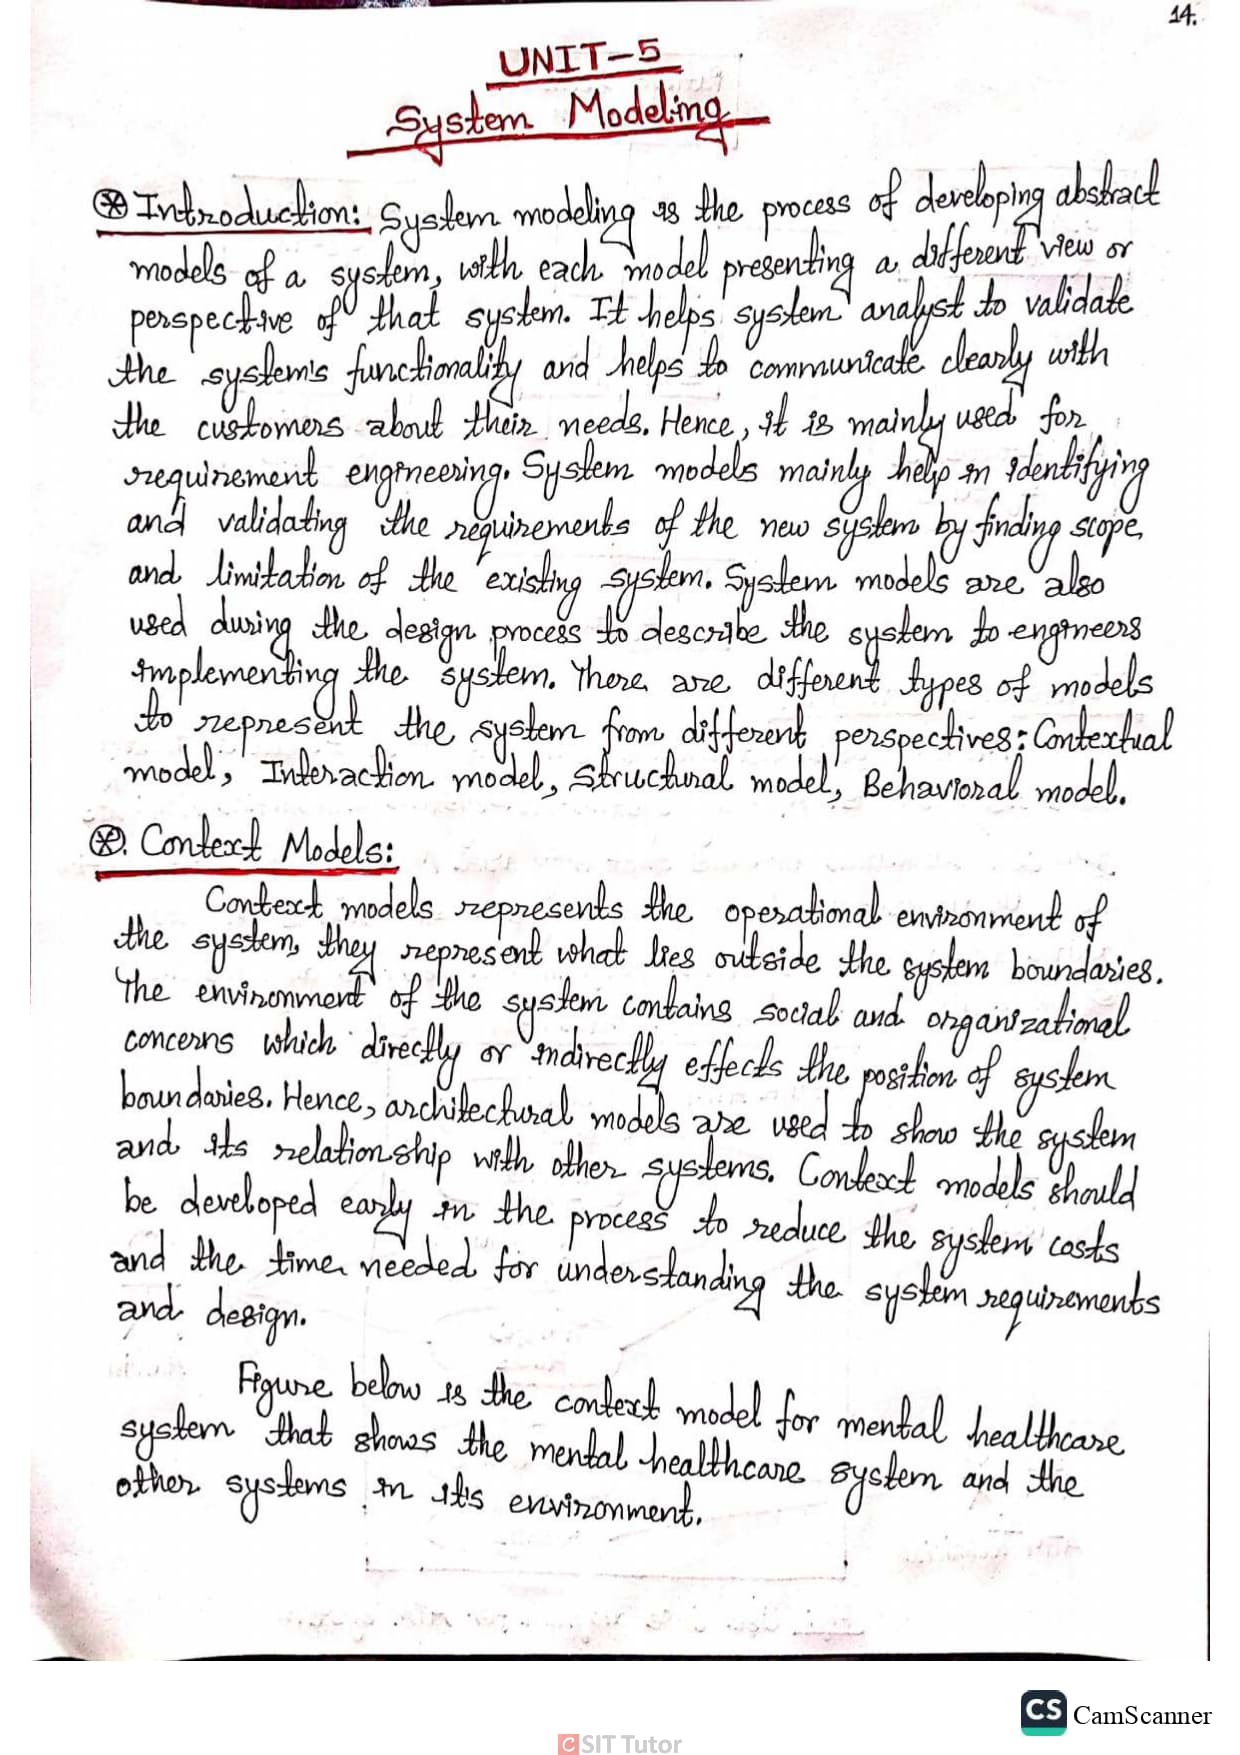 14.
UNIT-5
System Modeling
⊛ Introduction: System modeling is the process of developing abstract
models of a system, with each model presenting a different view or
perspective of that system. It helps system analyst to validate
the system's functionality and helps to communicate clearly with
the customers about their needs. Hence, it is mainly used for
requirement engineering. System models mainly help in identifying
and validating the requirements of the new system by finding scope
and limitation of the existing system. System models are also
used during the design process to describe the system to engineers
implementing the system. There are different types of models
to represent the system from different perspectives: Contextual
model, Interaction model, Structural model, Behavioral model.
⊛. Context Models:
Context models represents the operational environment of
the system, they represent what lies outside the system boundaries.
The environment of the system contains social and organizational
concerns which directly or indirectly effects the position of system
boundaries. Hence, architectural models are used to show the system
and its relationship with other systems. Context models should
be developed early in the process to reduce the system costs
and the time needed for understanding the system requirements
and design.
Figure below is the context model for mental healthcare
system that shows the mental healthcare system and the
other systems in it's environment.
CS CamScanner
CSIT Tutor